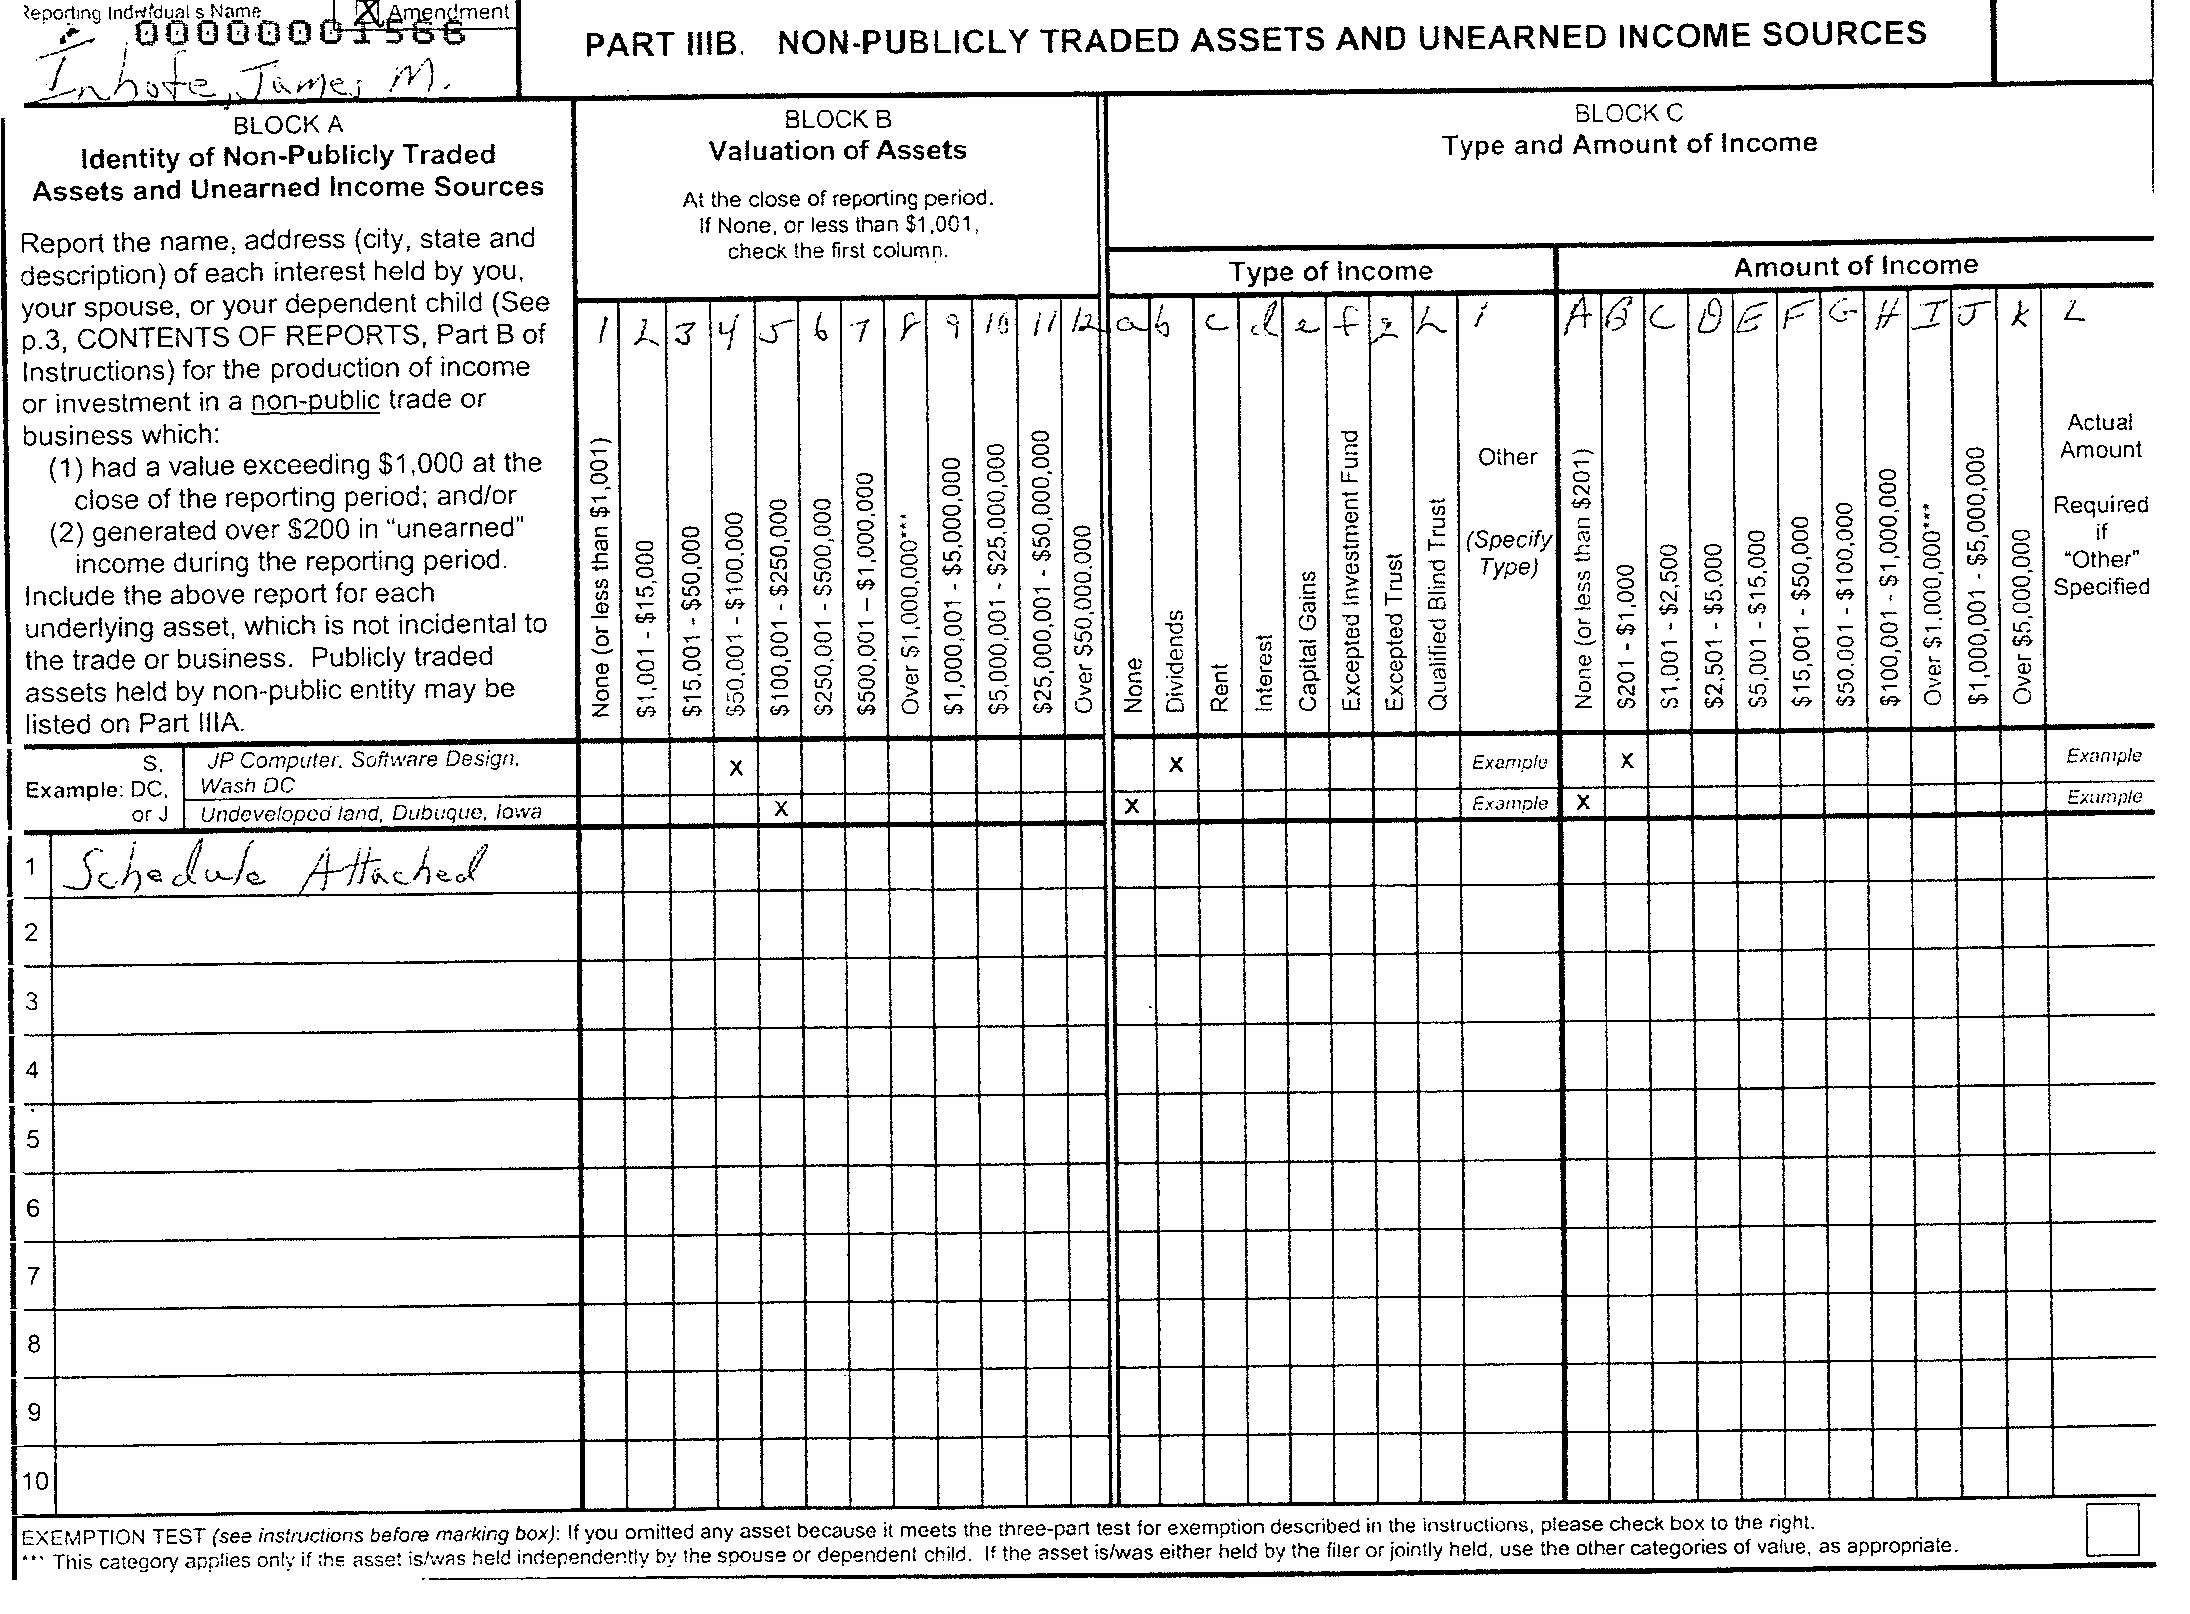 Reporting Individual s Name
X Amendment
000000001566
Inhofe, James M.
PART IIIB. NON-PUBLICLY TRADED ASSETS AND UNEARNED INCOME SOURCES
BLOCK A
Identity of Non-Publicly Traded
Assets and Unearned Income Sources
Report the name, address (city, state and
description) of each interest held by you,
your spouse, or your dependent child (See
p.3, CONTENTS OF REPORTS, Part B of
Instructions) for the production of income
or investment in a non-public trade or
business which:
(1) had a value exceeding $1,000 at the
close of the reporting period; and/or
(2) generated over $200 in “unearned”
income during the reporting period.
Include the above report for each
underlying asset, which is not incidental to
the trade or business. Publicly traded
assets held by non-public entity may be
listed on Part IIIA.
BLOCK B
Valuation of Assets
At the close of reporting period.
If None, or less than $1,001,
check the first column.
1 2 3 4 5 6 7 8 9 10 11 12
None (or less than $1,001)
$1,001 - $15,000
$15,001 - $50,000
$50,001 - $100,000
$100,001 - $250,000
$250,001 - $500,000
$500,001 – $1,000,000
Over $1,000,000***
$1,000,001 - $5,000,000
$5,000,001 - $25,000,000
$25,000,001 - $50,000,000
Over $50,000,000
BLOCK C
Type and Amount of Income
Type of Income
a b c d e f g h i
None
Dividends
Rent
Interest
Capital Gains
Excepted Investment Fund
Excepted Trust
Qualified Blind Trust
Other
(Specify
Type)
Amount of Income
A B C D E F G H I J K L
None (or less than $201)
$201 - $1,000
$1,001 - $2,500
$2,501 - $5,000
$5,001 - $15,000
$15,001 - $50,000
$50,001 - $100,000
$100,001 - $1,000,000
Over $1,000,000***
$1,000,001 - $5,000,000
Over $5,000,000
Actual
Amount
Required
if
“Other”
Specified
Example: S, DC, or J
JP Computer, Software Design,
Wash DC
X X Example X Example
Undeveloped land, Dubuque, Iowa
X X Example X Example
1 Schedule Attached
2
3
4
5
6
7
8
9
10
EXEMPTION TEST (see instructions before marking box): If you omitted any asset because it meets the three-part test for exemption described in the instructions, please check box to the right.
*** This category applies only if the asset is/was held independently by the spouse or dependent child. If the asset is/was either held by the filer or jointly held, use the other categories of value, as appropriate.